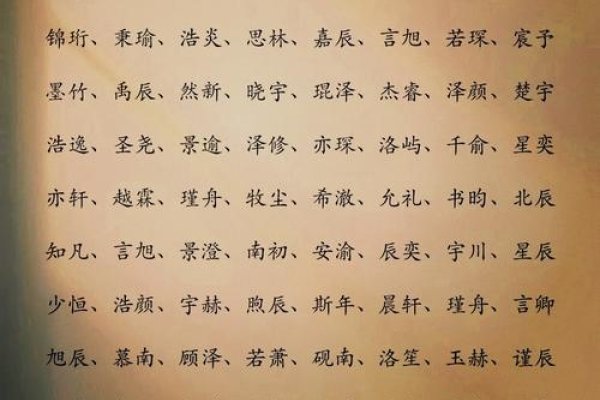 锦珩、秉瑜、浩炎、思林、嘉辰、言旭、若琛、宸予
墨竹、禹辰、然新、晓宇、琨泽、杰睿、泽颜、楚宇
浩逸、圣尧、景逾、泽修、亦琛、洛屿、千俞、星奕
亦轩、越霖、瑾舟、牧尘、希澈、允礼、书昀、北辰
知凡、言旭、景澄、南初、安渝、辰奕、宇川、星辰
少恒、浩颜、宇赫、煦辰、斯年、晨轩、瑾舟、言卿
旭辰、慕南、顾泽、若萧、砚南、洛笙、玉赫、谨辰